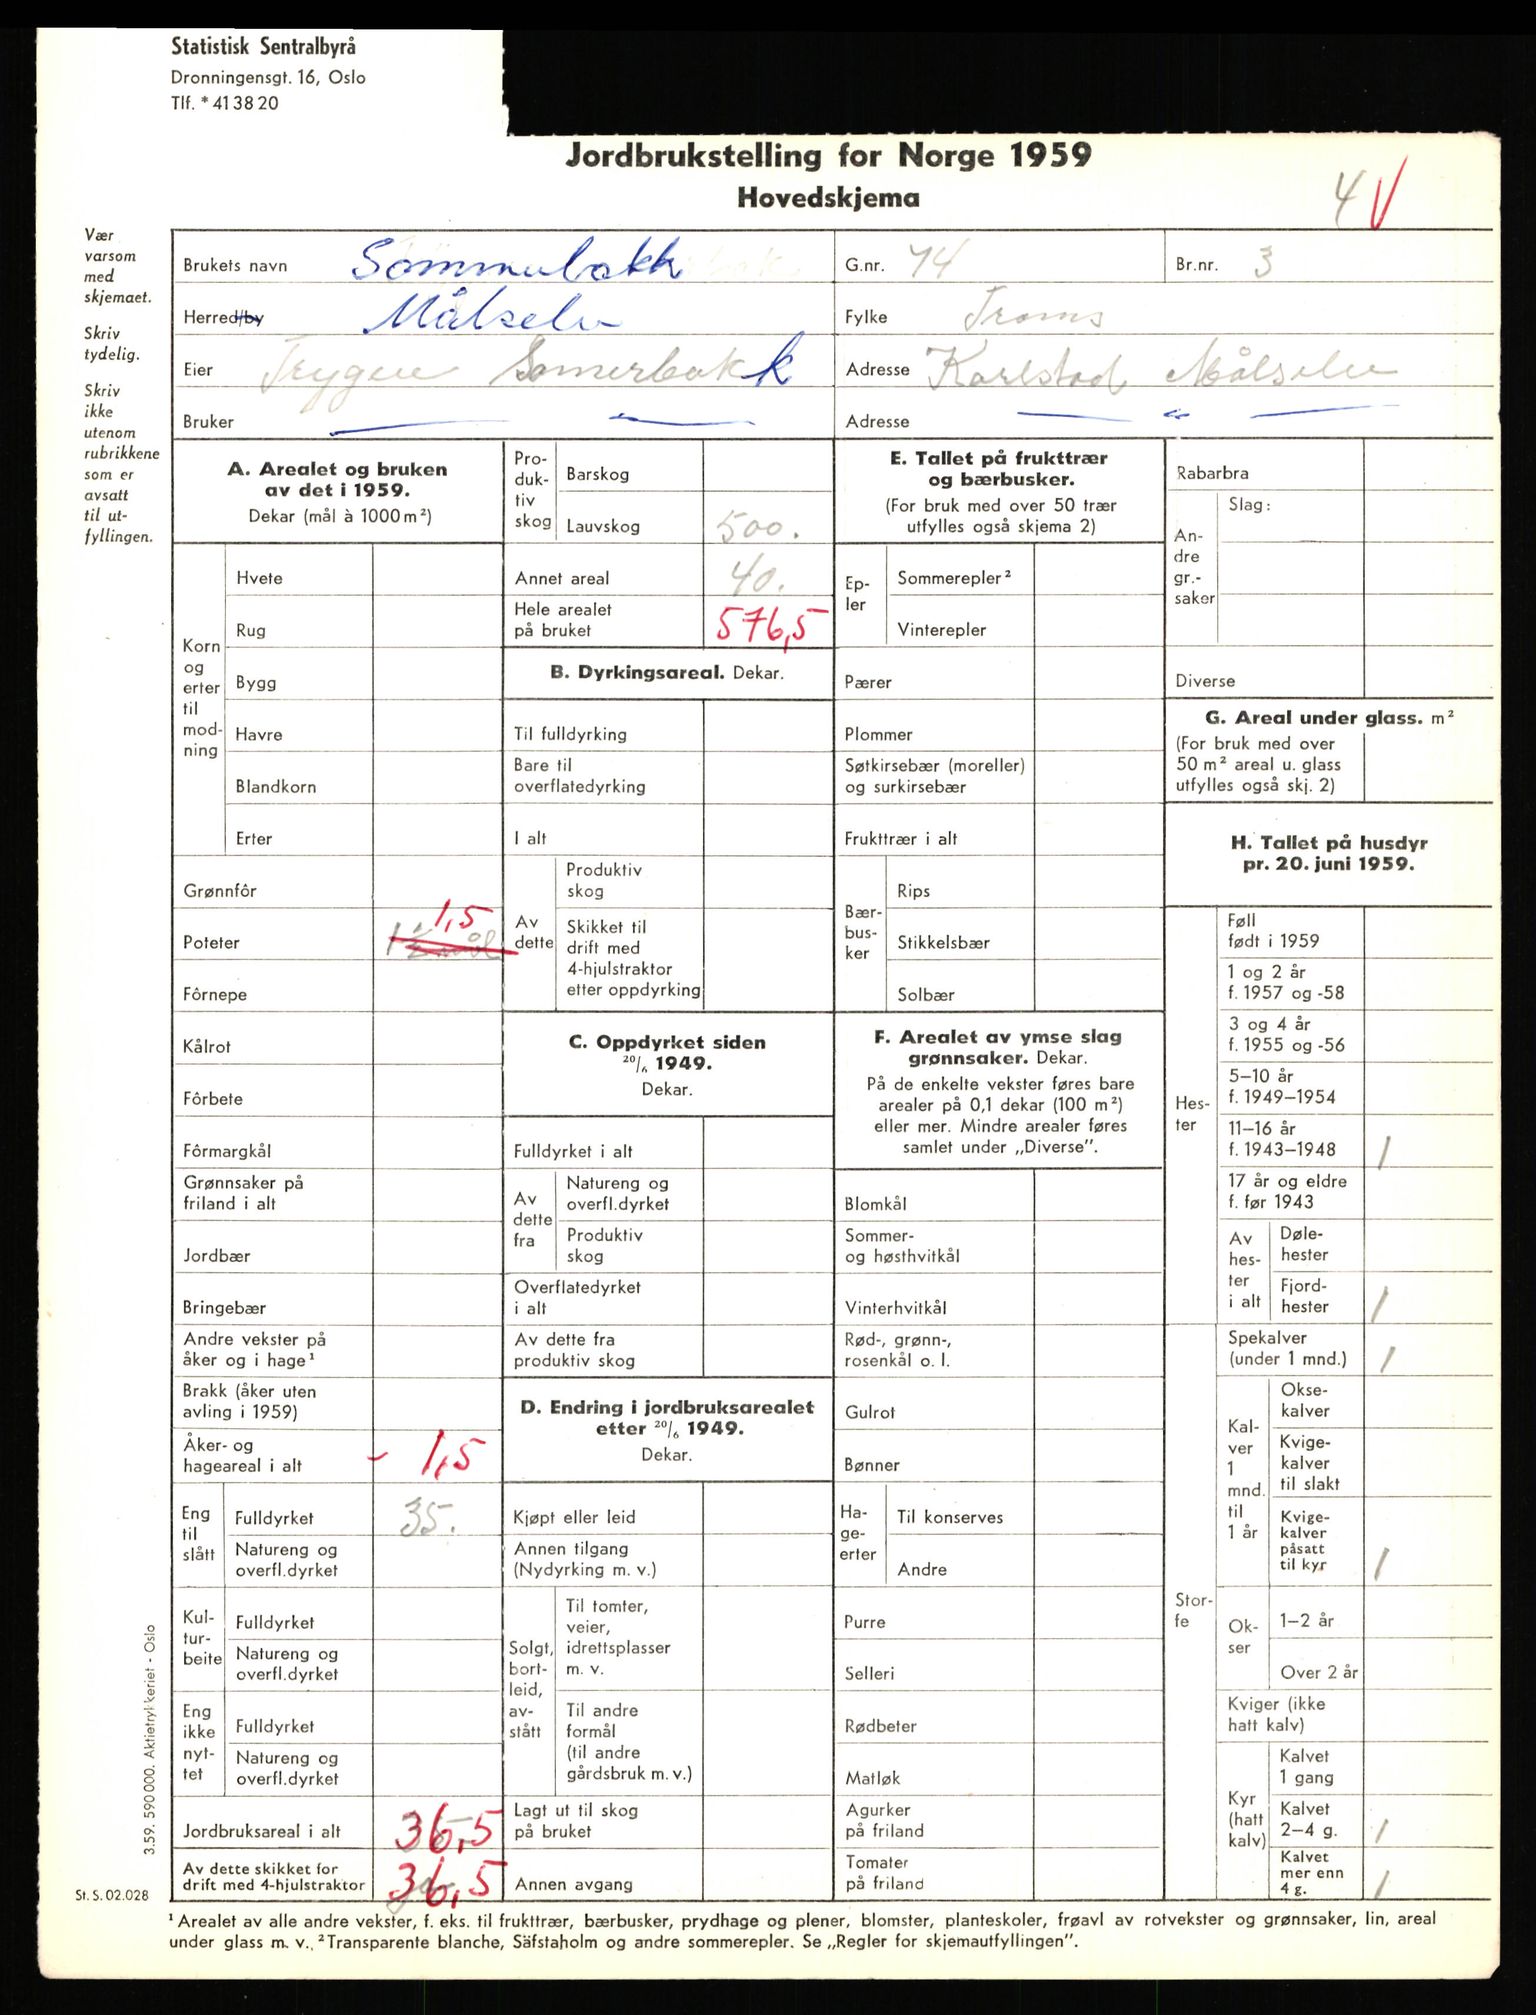 Statistisk Sentralbyrå
Dronningensgt. 16, Oslo
Tlf. * 41 38 20
Jordbrukstelling for Norge 1959
Hovedskjema
4 V
Vær
varsom
med
skjemaet.
Skriv
tydelig.
Skriv
ikke
utenom
rubrikkene
som er
avsatt
til ut-
fyllingen.
Brukets navn Sommerbakk G.nr. 74 Br.nr. 3
Herred/by Målselv Fylke Troms
Eier Trygve Somerbakk Adresse Karlstad Målselv
Bruker — — Adresse — " —
A. Arealet og bruken
av det i 1959.
Dekar (mål à 1000 m²)
Korn
og
erter
til
mod-
ning
Hvete
Rug
Bygg
Havre
Blandkorn
Erter
Grønnfôr
Poteter 1,5
1½ mål
Fôrnepe
Kålrot
Fôrbete
Fôrmargkål
Grønnsaker på
friland i alt
Jordbær
Bringebær
Andre vekster på
åker og i hage¹
Brakk (åker uten
avling i 1959)
Åker- og
hageareal i alt - 1,5
Eng
til
slått
Fulldyrket 35.
Natureng og
overfl.dyrket
Kul-
tur-
beite
Fulldyrket
Natureng og
overfl.dyrket
Eng
ikke
nyt-
tet
Fulldyrket
Natureng og
overfl.dyrket
Jordbruksareal i alt 36,5
Av dette skikket for
drift med 4-hjulstraktor 36,5
Pro-
duk-
tiv
skog
Barskog
Lauvskog 500.
Annet areal 40.
Hele arealet
på bruket 576,5
B. Dyrkingsareal. Dekar.
Til fulldyrking
Bare til
overflatedyrking
I alt
Av
dette
Produktiv
skog
Skikket til
drift med
4-hjulstraktor
etter oppdyrking
C. Oppdyrket siden
20/6 1949.
Dekar.
Fulldyrket i alt
Av
dette
fra
Natureng og
overfl.dyrket
Produktiv
skog
Overflatedyrket
i alt
Av dette fra
produktiv skog
D. Endring i jordbruksarealet
etter 20/6 1949.
Dekar.
Kjøpt eller leid
Annen tilgang
(Nydyrking m. v.)
Solgt,
bort-
leid,
av-
stått
Til tomter,
veier,
idrettsplasser
m. v.
Til andre
formål
(til andre
gårdsbruk m. v.)
Lagt ut til skog
på bruket
Annen avgang
E. Tallet på frukttrær
og bærbusker.
(For bruk med over 50 trær
utfylles også skjema 2)
Ep-
ler
Sommerepler²
Vinterepler
Pærer
Plommer
Søtkirsebær (moreller)
og surkirsebær
Frukttrær i alt
Bær-
bus-
ker
Rips
Stikkelsbær
Solbær
F. Arealet av ymse slag
grønnsaker. Dekar.
På de enkelte vekster føres bare
arealer på 0,1 dekar (100 m²)
eller mer. Mindre arealer føres
samlet under „Diverse”.
Blomkål
Sommer-
og høsthvitkål
Vinterhvitkål
Rød-, grønn-,
rosenkål o. l.
Gulrot
Bønner
Ha-
ge-
erter
Til konserves
Andre
Purre
Selleri
Rødbeter
Matløk
Agurker
på friland
Tomater
på friland
Rabarbra
An-
dre
gr.-
saker
Slag:
Diverse
G. Areal under glass. m²
(For bruk med over
50 m² areal u. glass
utfylles også skj. 2)
H. Tallet på husdyr
pr. 20. juni 1959.
Hes-
ter
Føll
født i 1959
1 og 2 år
f. 1957 og -58
3 og 4 år
f. 1955 og -56
5–10 år
f. 1949–1954
11–16 år
f. 1943–1948 1
17 år og eldre
f. før 1943
Av
hes-
ter
i alt
Døle-
hester
Fjord-
hester 1
Stor-
fe
Spekalver
(under 1 mnd.) 1
Kal-
ver
1
mnd.
til
1 år
Okse-
kalver
Kvige-
kalver
til slakt
Kvige-
kalver
påsatt
til kyr 1
Ok-
ser
1–2 år
Over 2 år
Kviger (ikke
hatt kalv)
Kyr
(hatt
kalv)
Kalvet
1 gang
Kalvet
2–4 g. 1
Kalvet
mer enn
4 g. 1
3.59. 590 000. Aktietrykkeriet - Oslo
St. S. 02.028
¹ Arealet av alle andre vekster, f. eks. til frukttrær, bærbusker, prydhage og plener, blomster, planteskoler, frøavl av rotvekster og grønnsaker, lin, areal
under glass m. v., ² Transparente blanche, Säfstaholm og andre sommerepler. Se „Regler for skjemautfyllingen”.